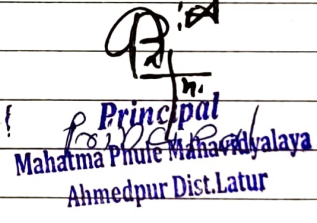 Principal
Principal
Mahatma Phule Mahavidyalaya
Ahmedpur Dist.Latur